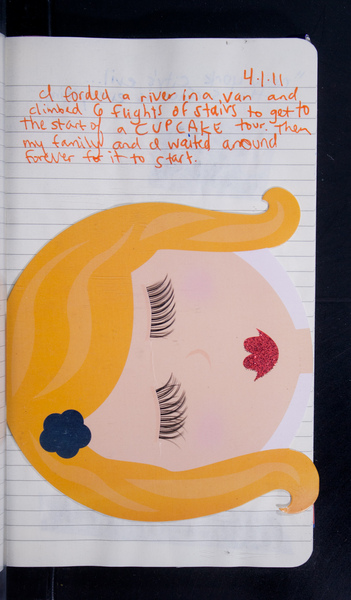 4.1.11
I forded a river in a van and
climbed 6 flights of stairs to get to
the start of a CUPCAKE tour. Then
my family and I waited around
forever for it to start.